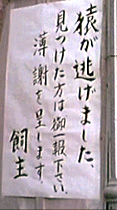 猿が逃げました、
見つけた方は御一報下さい、
薄謝を呈します
飼主